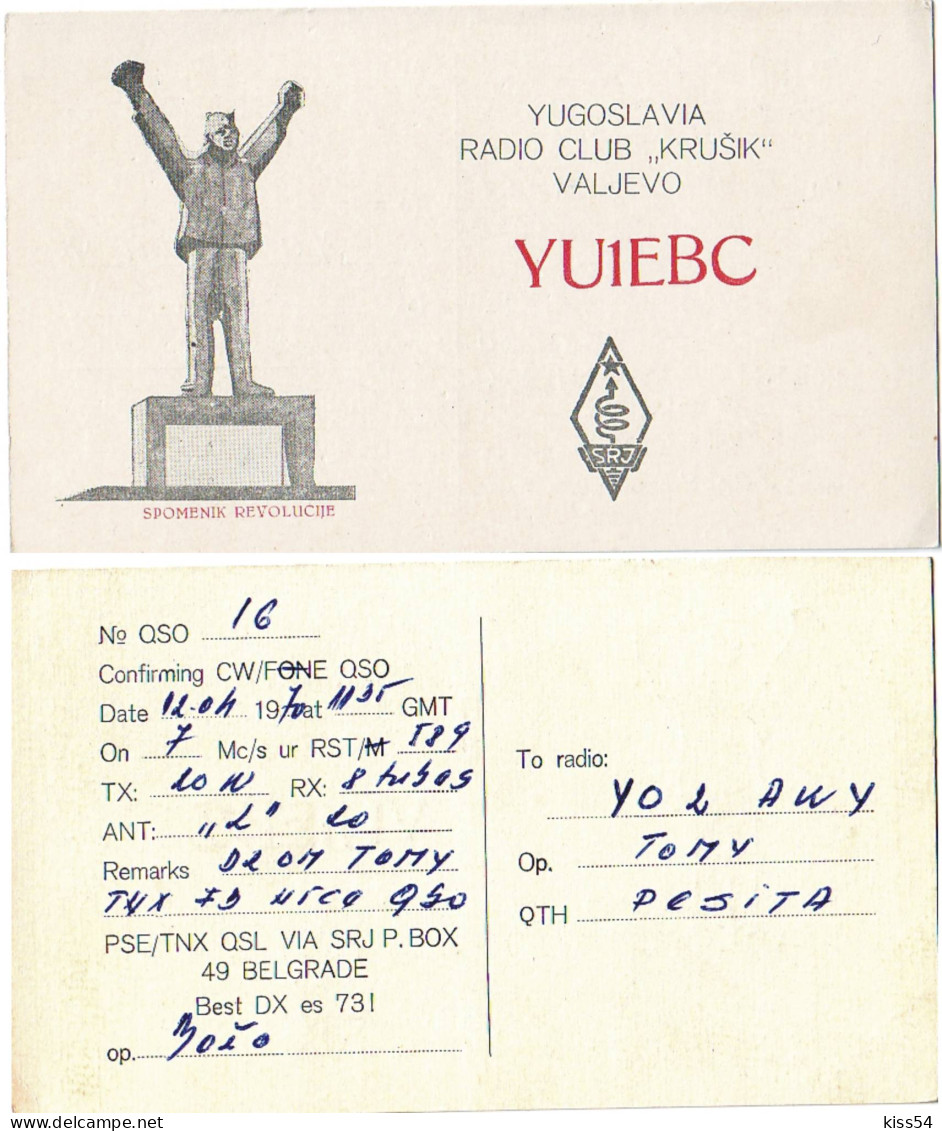 YUGOSLAVIA
RADIO CLUB „KRUŠIK“
VALJEVO
YU1EBC
SRJ
SPOMENIK REVOLUCIJE
№ QSO 16
Confirming CW/FONE QSO
Date 12.04 1970 at 1135 GMT
On 7 Mc/s ur RST/M 589
TX: 20 W RX: 8 tubes
ANT: „L" 20
Remarks DR OM TOMY
TNX FB NICE QSO
PSE/TNX QSL VIA SRJ P. BOX
49 BELGRADE
Best DX es 73!
op. Božo
To radio:
YO2 AKY
Op. TOMY
QTH RESITA
kiss54